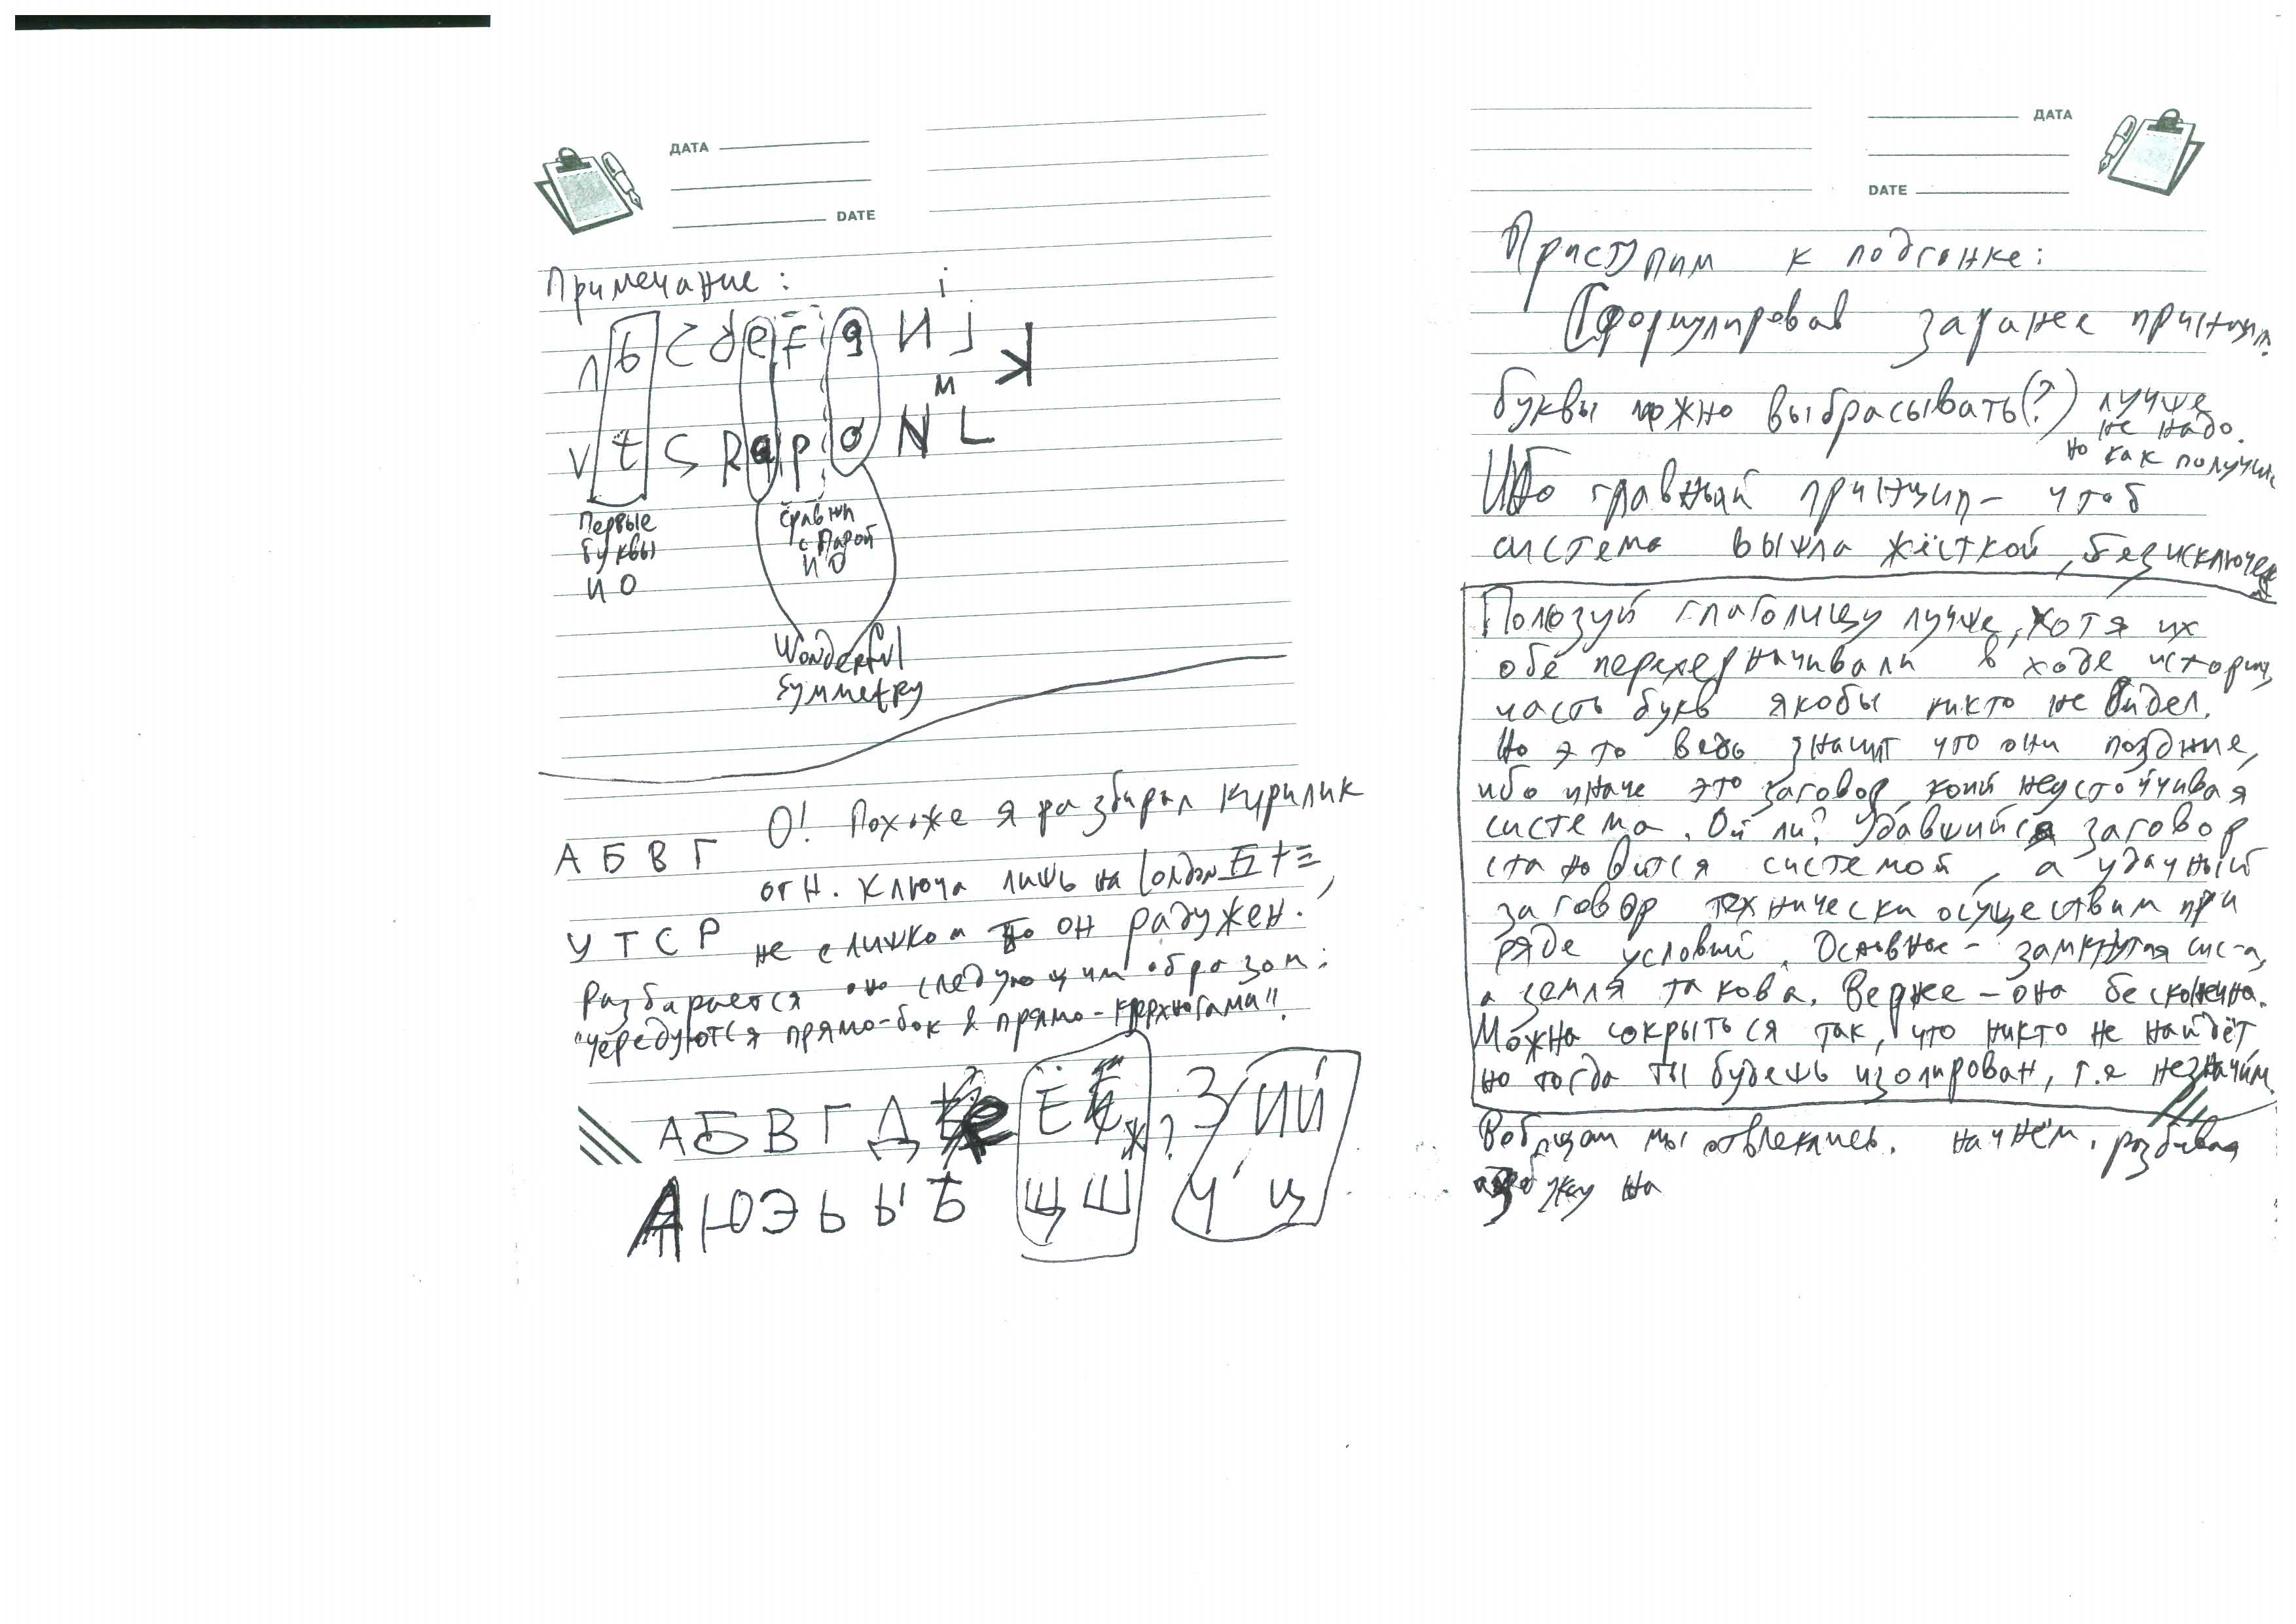 ДАТА
DATE
Примечание:
i
Л b С d e f g И J
м K
V t S R q p o N L
Первые
буквы
И О
Сравни
с парой
И О
Wonderful
Symmetry
О! Похоже я разбирал Кирилик
А Б В Г
от Н. Ключа лишь на London
У Т С Р
не слишком то он радужен.
Разбирается оно следующим образом:
"Чередуются прямо-бок & прямо-
А Б В Г Д е Ё Ж? З И Й
Я Ю Э Ь Ы Ъ Щ Ш Ч Ц
ДАТА
DATE
Приступим к подгонке:
Сформулировав заранее принцип.
буквы можно выбрасывать(?) лучше
не надо.
но как получил
Ибо главный принцип - чтоб
система вышла жёсткой, без исключен
Пользуй глаголицу лучше, хотя их
обе перехерначивали в ходе истории,
часть букв якобы никто не видел.
Но это ведь значит что они поздние,
ибо иначе это заговор, коий неустойчивая
система. Ой ли? Удавшийся заговор
становится системой, а удачный
заговор технически осуществим при
ряде условий. Основное - замкнутая сис-а,
а земля такова. Верже - она бесконечна.
Можно сокрыться так, что никто не найдёт
но тогда ты будешь изолирован, т.е незначим.
Вобщем мы отвлеклись. начнём, разбивая
азбуку на